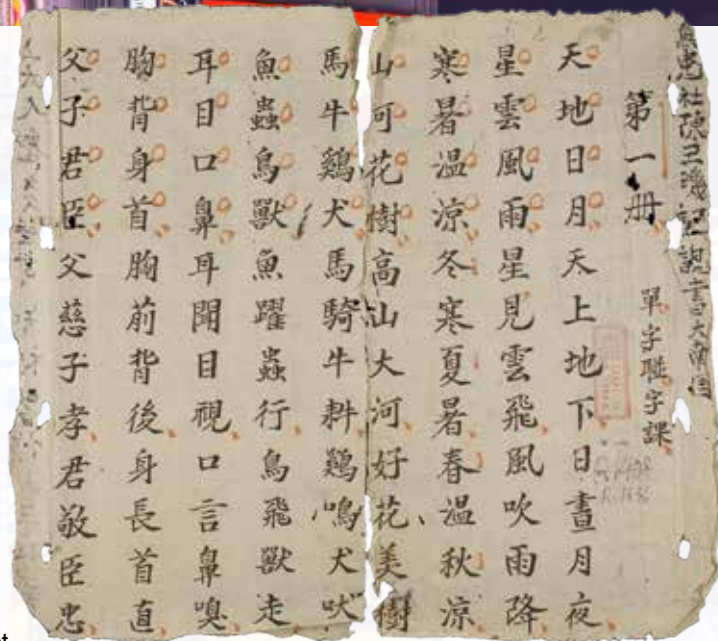 第一册
單字聮字課
天地日月天上地下日晝月夜
星雲風雨星見雲飛風吹雨降
寒暑溫涼冬寒夏暑春溫秋涼
山河花樹高山大河好花美樹
馬牛鷄犬馬騎牛耕鷄鳴犬吠
魚蟲鳥獸魚躍蟲行鳥飛獸走
耳目口鼻耳聞目視口言鼻嗅
胸背身首胸前背後身長首直
父子君臣父慈子孝君敬臣忠